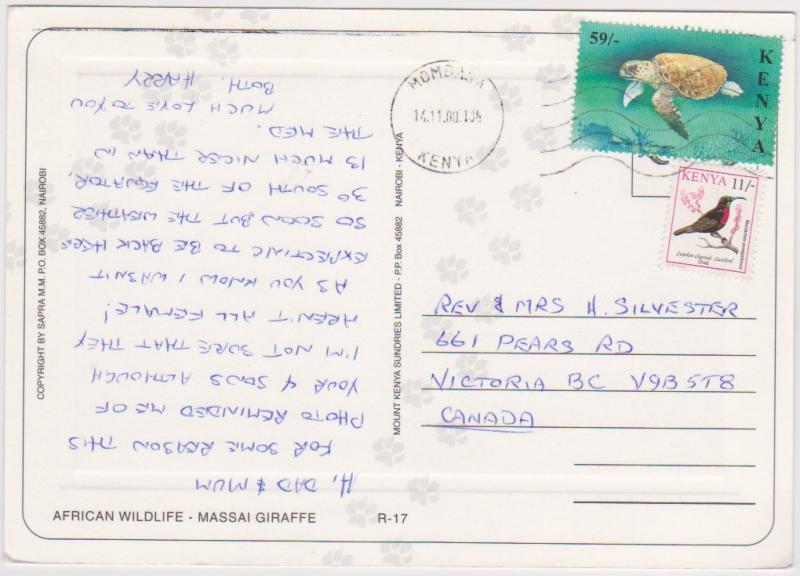 HI, DAD & MUM
FOR SOME REASON THIS
PHOTO REMINDED ME OF
YOUR 4 SONS ALTHOUGH
I'M NOT SURE THAT THEY
AREN'T ALL FEMALE!
AS YOU KNOW I WASN'T
EXPECTING TO BE BACK HERE
SO SOON BUT THE WEATHER
3º SOUTH OF THE EQUATOR,
IS MUCH NICER THAN IN
THE MED.
MUCH LOVE TO YOU
BOTH. HARRY
COPYRIGHT BY SAPRA M.M. P.O. BOX 45882, NAIROBI
MOUNT KENYA SUNDRIES LIMITED - P.P. BOX 45882 NAIROBI - KENYA
AFRICAN WILDLIFE - MASSAI GIRAFFE R-17
MOMBASA
14.11.00
KENYA
59/-
KENYA
KENYA 11/-
Scarlet-chested Sunbird
REV & MRS H. SILVESTER
661 PEARS RD
VICTORIA BC V9B5T8
CANADA